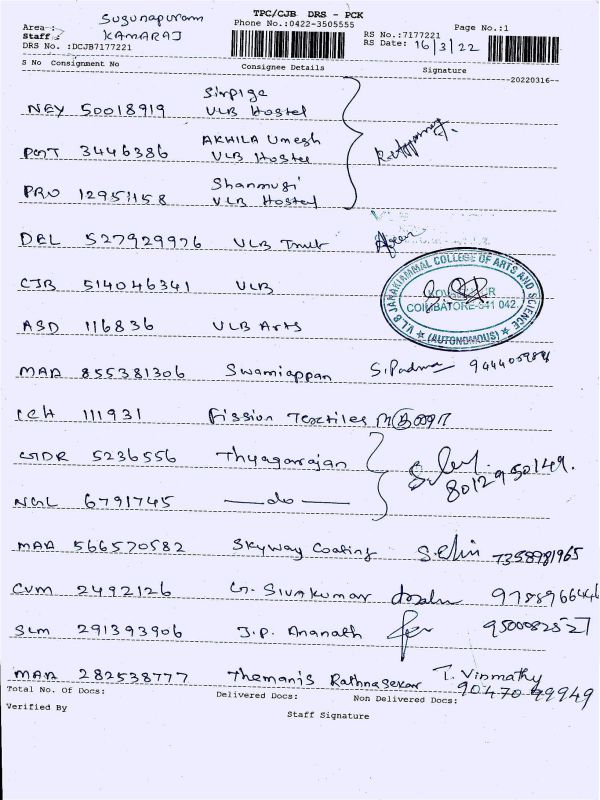 TPC/CJB DRS - PCK
Phone No.:0422-3505555
Page No.:1
Area : Sugunapuram
Staff : KAMARAJ
DRS No. :DCJB7177221
RS No.:7177221
RS Date: 16/3/22
S No Consignment No Consignee Details Signature
20220316
NEY 50018919 VLB Hostel
PMT 3446386 AKHILA Umesh
VLB Hostel
PRO 12951158 Shanmugi
VLB Hostel
DEL 527929926 VLB Trust
CJB 514046341 VLB
V.L.B JANAKIAMMAL COLLEGE OF ARTS AND SCIENCE
COIMBATORE-641 042.
(AUTONOMOUS)
ASD 116836 VLB Arts
MAA 855381306 Swamiappan S.Padma
ICH 111931 Fission Textiles
GDR 5236556 Thyagarajan
8012950149.
NGL 6791745 do
MAA 566570582 Skyway Coating 7358981965
CVM 2492126 G. Sivakumar
SLM 291393906 J.P. Ananath
MAA 282538777 Themanis Rathnasekar T. Vinmathy
90470 99949
Total No. Of Docs: Delivered Docs: Non Delivered Docs:
Verified By
Staff Signature